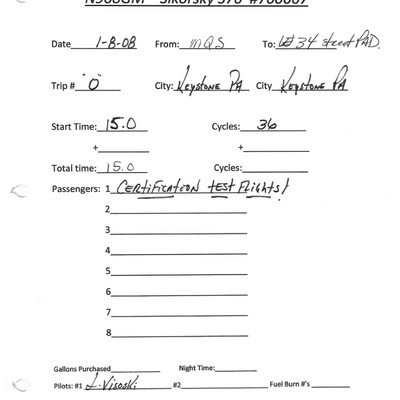 N908GM - Sikorsky S76 #760667
Date 1-8-08 From: MQS To: W 34 street PAD.
Trip # "0" City: Keystone PA City Keystone PA
Start Time: 15.0 Cycles: 36
+ +
Total time: 15.0 Cycles:
Passengers: 1 Certification test Flights!
2
3
4
5
6
7
8
Gallons Purchased Night Time:
Pilots: #1 L. Visoski #2 Fuel Burn #'s